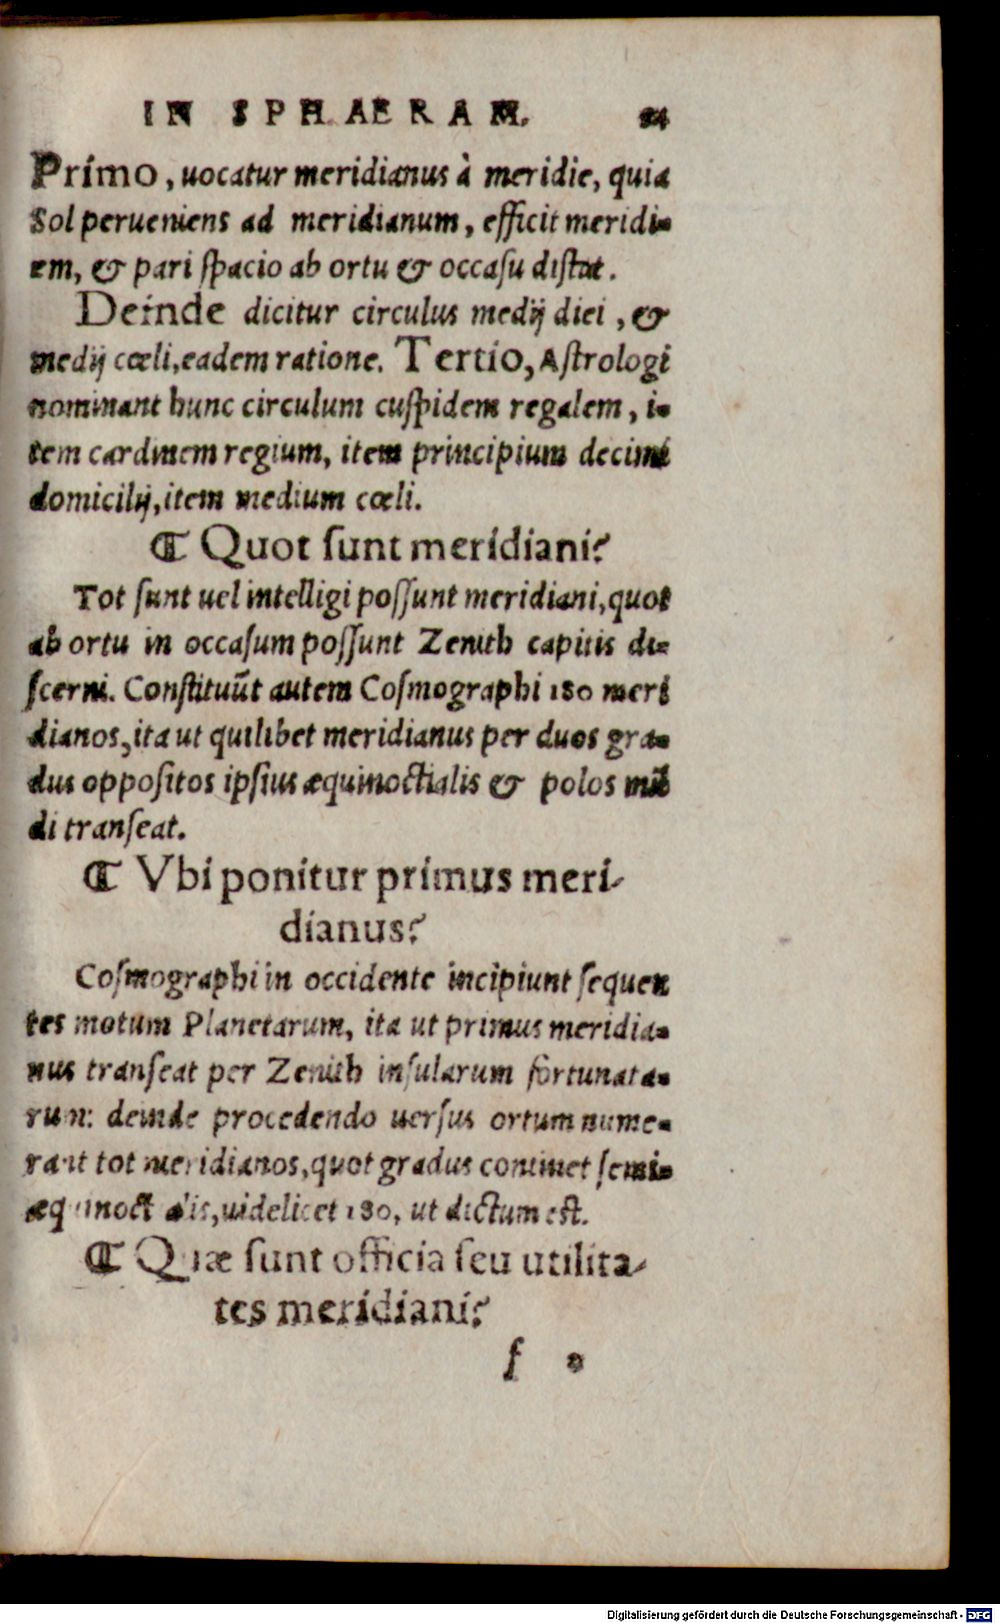 IN SPHAERAM. 24
Primo, uocatur meridianus à meridie, quia
Sol perueniens ad meridianum, efficit meridi-
em, & pari spacio ab ortu & occasu distat.
Deinde dicitur circulus medij diei, &
medij cœli, eadem ratione. Tertio, Astrologi
nominant hunc circulum cuspidem regalem, i-
tem cardinem regium, item principium decimi
domicilij, item medium cœli.
¶ Quot sunt meridiani?
Tot sunt uel intelligi possunt meridiani, quot
ab ortu in occasum possunt Zenith capitis di-
scerni. Constituūt autem Cosmographi 180 meri
dianos, ita ut quilibet meridianus per duos gra-
dus oppositos ipsius æquinoctialis & polos mū
di transeat.
¶ Vbi ponitur primus meri-
dianus?
Cosmographi in occidente incipiunt sequen
tes motum Planetarum, ita ut primus meridia-
nus transeat per Zenith insularum fortunata-
rum: deinde procedendo uersus ortum nume-
rant tot meridianos, quot gradus continet semi-
æquinoctialis, uidelicet 180, ut dictum est.
¶ Quæ sunt officia seu utilita-
tes meridiani?
f
Digitalisierung gefördert durch die Deutsche Forschungsgemeinschaft - DFG